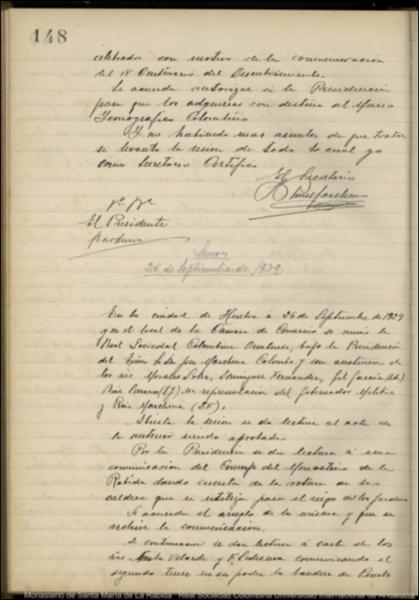 148
celebrados con motivo de la conmemoración
del IV Centenario del Descubrimiento.
Se acuerda autorizar a la Presidencia
para que los adquiera con destino al Museo
Iconografico Colombino
Y no habiendo mas asuntos de que tratar
se levantó la sesion de todo lo cual yo
como Secretario Certifico
El Secretario
Vº Bº
El Presidente
Marchena
Sesion
26 de Septiembre de 1929.
En la ciudad de Huelva a 26 de Septiembre de 1929
y en el local de la Camara de Comercio se reunió la
Real Sociedad Colombina Onubense, bajo la Presidencia
del Excmo Sr. Marchena Colombo y con asistencia de
los Sres Morales, Dominguez Fernandez, Gil Garcia
en representacion del Gobernador Militar
y Ruiz Marchena
Abierta la sesion se da lectura al acta de
la anterior siendo aprobada.
Por la Presidencia se da lectura a una
comunicación del Conserje del Monasterio de la
Rabida dando cuenta de la rotura de la
caldera que se utiliza para el riego de los Jardines
Se acuerda el arreglo de la misma y que se
archive la comunicación.
A continuacion se dan lectura a carta de los
Sres Velarde y comunicando el
segundo tener en su poder la bandera de
Monasterio de Santa María de La Rábida. Real Sociedad Colombina Onubense. Universidad Internacional de Andalucía